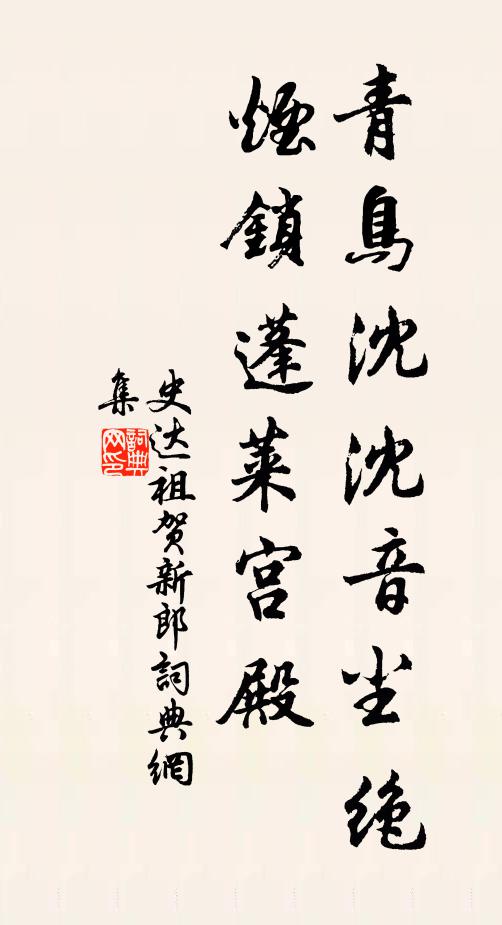 青鳥沈沈音尘绝
煙鎖蓬莱宫殿
史达祖贺新郎詞典網
集
詞典网印